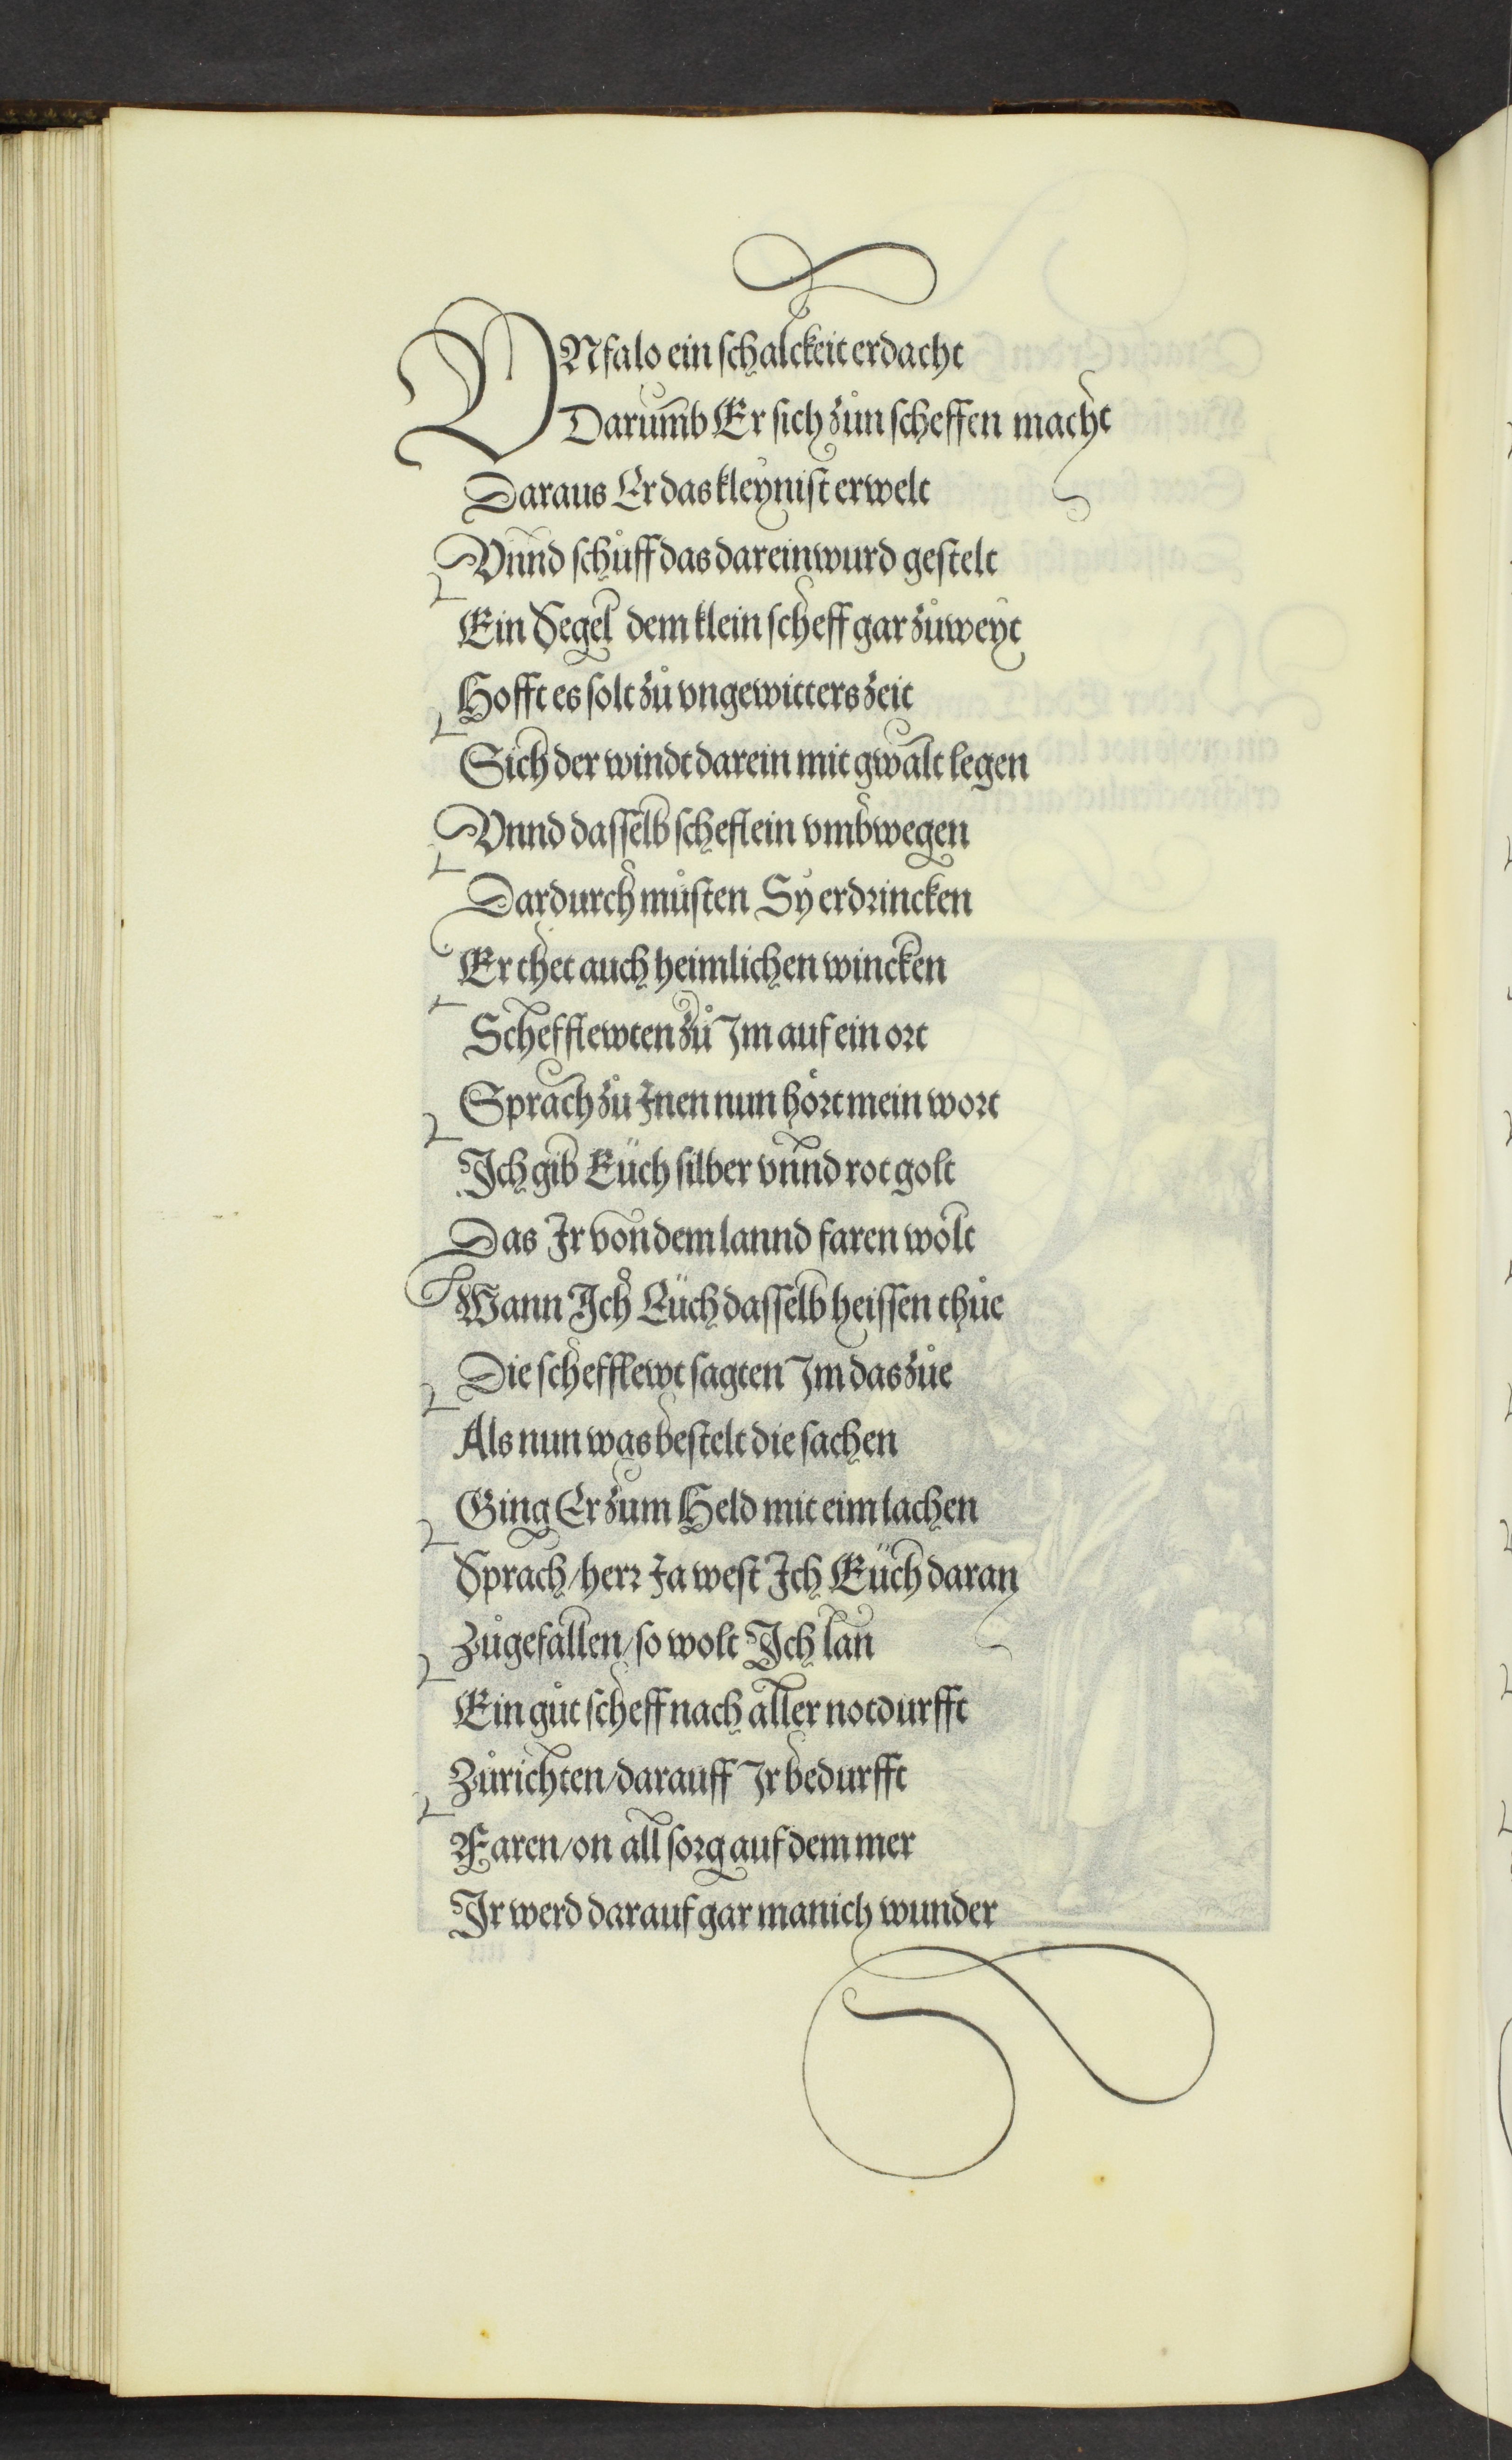 VNfalo ein schalckeit erdacht
Darumb Er sich zůn scheffen macht
Daraus Er das kleynist erwelt
Vnnd schůff das darein wurd gestelt
Ein Segel dem klein scheff gar zůweyt
Hofft es solt zů vngewitters zeit
Sich der windt darein mit gwalt legen
Vnnd dasselb scheflein vmbwegen
Dardurch můsten Sy erdrincken
Er thet auch heimlichen wincken
Schefflewten zů Im auf ein ort
Sprach zů Inen nun hőrt mein wort
Ich gib Eüch silber vnnd rot golt
Das Ir von dem lannd faren wőlt
Wann Ich Eüch dasselb heissen thůe
Die schefflewt sagten Im das zůe
Als nun was bestelt die sachen
Ging Er zum Held mit eim lachen
Sprach / herr Ja west Ich Eüch daran
Zůgefallen / so wolt Ich lan
Ein gůt scheff nach aller notdurfft
Zůrichten / darauff Ir bedurfft
Faren / on all sorg auf dem mer
Ir werd darauf gar manich wunder